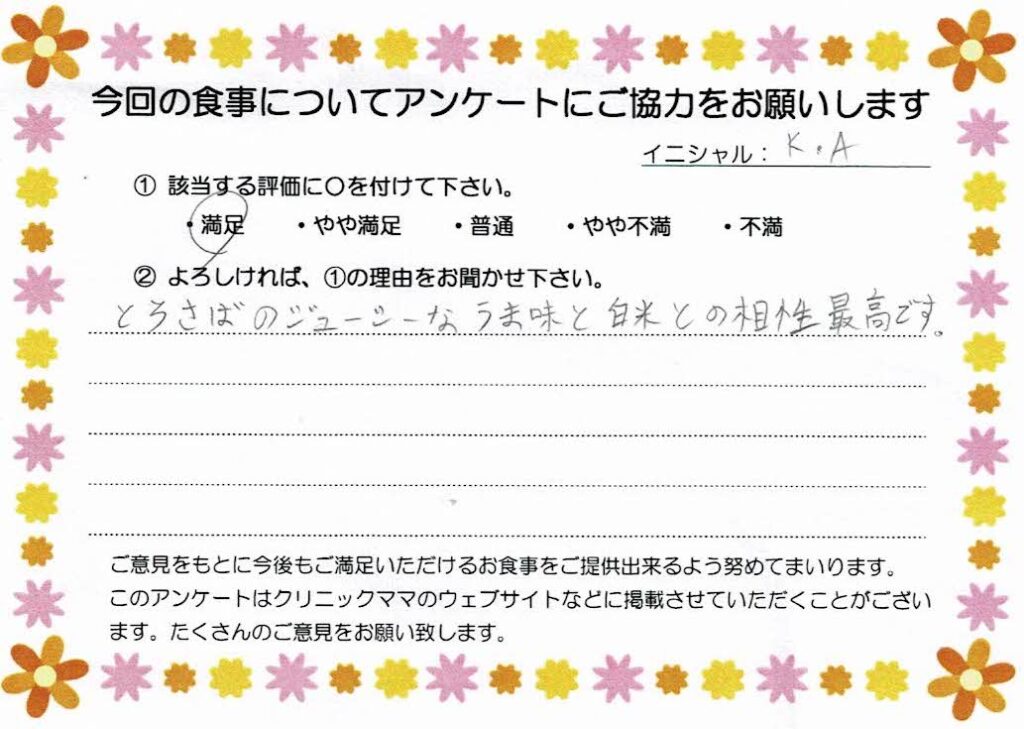 今回の食事についてアンケートにご協力をお願いします
イニシャル： K.A
① 該当する評価に〇を付けて下さい。
・満足 ・やや満足 ・普通 ・やや不満 ・不満
② よろしければ、①の理由をお聞かせ下さい。
とろさばのジューシーなうま味と白米との相性最高です。
ご意見をもとに今後もご満足いただけるお食事をご提供出来るよう努めてまいります。
このアンケートはクリニックママのウェブサイトなどに掲載させていただくことがござい
ます。たくさんのご意見をお願い致します。